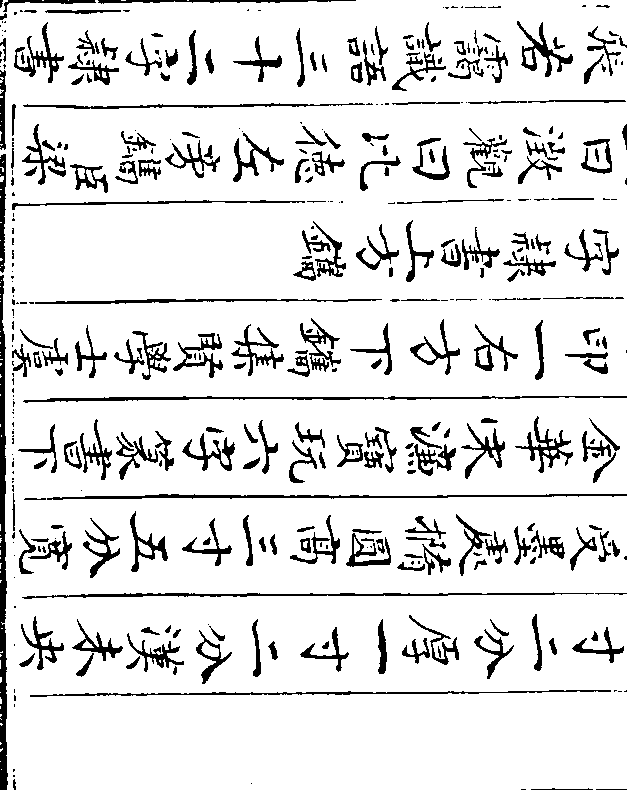 寸二分厚一寸二分漢未央
受墨處橢圓高三寸五分寬
金華宋濂寶玩六字篆書下
印一右方下鐫集賢學士虞
字隸書上方鐫
曰澂觀曰比德左旁鐫臣梁
張若靄識語三十二字隸書